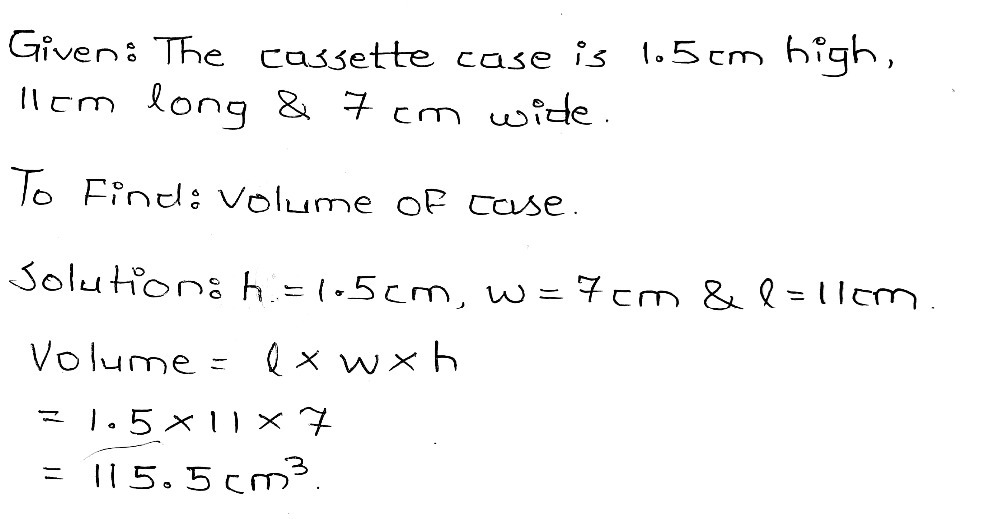 Given: The cassette case is 1.5cm high,
11cm long & 7 cm wide.
To Find: Volume of case.
Solution: h = 1.5cm, w = 7cm & l = 11cm.
Volume = l × w × h
= 1.5 × 11 × 7
= 115.5 cm³.